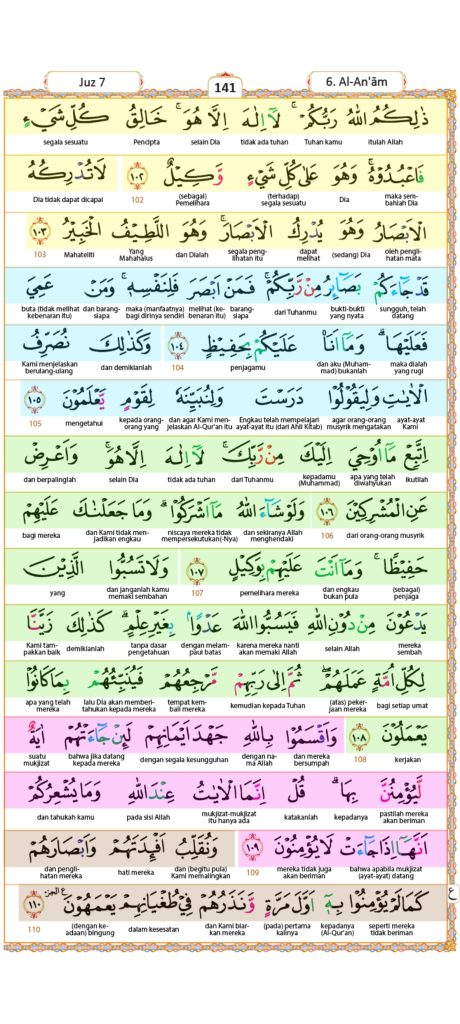 Juz 7
141
6. Al-An'ām
ذٰلِكُمُ اللّٰهُ رَبُّكُمْ ۚ لَآ اِلٰهَ اِلَّا هُوَ ۚ خَالِقُ كُلِّ شَيْءٍ
itulah Allah Tuhan kamu tidak ada tuhan selain Dia Pencipta segala sesuatu
فَاعْبُدُوْهُ ۚ وَهُوَ عَلٰى كُلِّ شَيْءٍ وَّكِيْلٌ ١٠٢ لَا تُدْرِكُهُ
maka sembahlah Dia Dia (terhadap) segala sesuatu (sebagai) Pemelihara 102 Dia tidak dapat dicapai
الْاَبْصَارُ وَهُوَ يُدْرِكُ الْاَبْصَارَ ۚ وَهُوَ اللَّطِيْفُ الْخَبِيْرُ ١٠٣
oleh penglihatan mata (sedang) Dia dapat melihat segala penglihatan itu dan Dialah Yang Mahahalus Mahateliti 103
قَدْ جَاۤءَكُمْ بَصَاۤىِٕرُ مِنْ رَّبِّكُمْ ۚ فَمَنْ اَبْصَرَ فَلِنَفْسِهٖ ۚ وَمَنْ عَمِيَ
sungguh, telah datang bukti-bukti yang nyata dari Tuhanmu barangsiapa melihat (kebenaran itu) maka (manfaatnya) bagi dirinya sendiri dan barangsiapa buta (tidak melihat kebenaran itu)
فَعَلَيْهَا ۗ وَمَآ اَنَا۠ عَلَيْكُمْ بِحَفِيْظٍ ١٠٤ وَكَذٰلِكَ نُصَرِّفُ
maka dialah yang rugi dan aku (Muhammad) bukanlah penjagamu 104 dan demikianlah Kami menjelaskan berulang-ulang
الْاٰيٰتِ وَلِيَقُوْلُوْا دَرَسْتَ وَلِنُبَيِّنَهٗ لِقَوْمٍ يَّعْلَمُوْنَ ١٠٥
ayat-ayat Kami agar orang-orang musyrik mengatakan Engkau telah mempelajari ayat-ayat itu (dari Ahli Kitab) dan agar Kami menjelaskan Al-Qur'an itu kepada orang-orang yang mengetahui 105
اِتَّبِعْ مَآ اُوْحِيَ اِلَيْكَ مِنْ رَّبِّكَ ۚ لَآ اِلٰهَ اِلَّا هُوَ ۚ وَاَعْرِضْ
ikutilah apa yang telah diwahyukan kepadamu (Muhammad) dari Tuhanmu tidak ada tuhan selain Dia dan berpalinglah
عَنِ الْمُشْرِكِيْنَ ١٠٦ وَلَوْ شَاۤءَ اللّٰهُ مَآ اَشْرَكُوْا ۗ وَمَا جَعَلْنٰكَ عَلَيْهِمْ
dari orang-orang musyrik 106 dan sekiranya Allah menghendaki niscaya mereka tidak mempersekutukan(-Nya) dan Kami tidak menjadikan engkau bagi mereka
حَفِيْظًا ۚ وَمَآ اَنْتَ عَلَيْهِمْ بِوَكِيْلٍ ١٠٧ وَلَا تَسُبُّوا الَّذِيْنَ
(sebagai) penjaga dan engkau bukan pula pemelihara mereka 107 dan janganlah kamu memaki sembahan yang
يَدْعُوْنَ مِنْ دُوْنِ اللّٰهِ فَيَسُبُّوا اللّٰهَ عَدْوًاۢ بِغَيْرِ عِلْمٍ ۗ كَذٰلِكَ زَيَّنَّا
mereka sembah selain Allah karena mereka nanti akan memaki Allah dengan melampaui batas tanpa dasar pengetahuan demikianlah Kami tampakkan baik
لِكُلِّ اُمَّةٍ عَمَلَهُمْ ۖ ثُمَّ اِلٰى رَبِّهِمْ مَّرْجِعُهُمْ فَيُنَبِّئُهُمْ بِمَا كَانُوْا
bagi setiap umat (atas) pekerjaan mereka kemudian kepada Tuhan tempat kembali mereka lalu Dia akan memberitahukan kepada mereka apa yang telah mereka
يَعْمَلُوْنَ ١٠٨ وَاَقْسَمُوْا بِاللّٰهِ جَهْدَ اَيْمَانِهِمْ لَىِٕنْ جَاۤءَتْهُمْ اٰيَةٌ
kerjakan 108 dan mereka bersumpah dengan nama Allah dengan segala kesungguhan bahwa jika datang kepada mereka suatu mukjizat
لَّيُؤْمِنُنَّ بِهَا ۗ قُلْ اِنَّمَا الْاٰيٰتُ عِنْدَ اللّٰهِ وَمَا يُشْعِرُكُمْ
pastilah mereka akan beriman kepadanya katakanlah mukjizat-mukjizat itu hanya ada pada sisi Allah dan tahukah kamu
اَنَّهَآ اِذَا جَاۤءَتْ لَا يُؤْمِنُوْنَ ١٠٩ وَنُقَلِّبُ اَفْـِٕدَتَهُمْ وَاَبْصَارَهُمْ
bahwa apabila mukjizat (ayat-ayat) datang mereka tidak juga akan beriman 109 dan (begitu pula) Kami memalingkan hati mereka dan penglihatan mereka
كَمَا لَمْ يُؤْمِنُوْا بِهٖٓ اَوَّلَ مَرَّةٍ وَّنَذَرُهُمْ فِيْ طُغْيَانِهِمْ يَعْمَهُوْنَ ١١٠ ع
seperti mereka tidak beriman kepadanya (Al-Qur'an) (pada) pertama kalinya dan Kami biarkan mereka dalam kesesatan (dengan keadaan) bingung 110